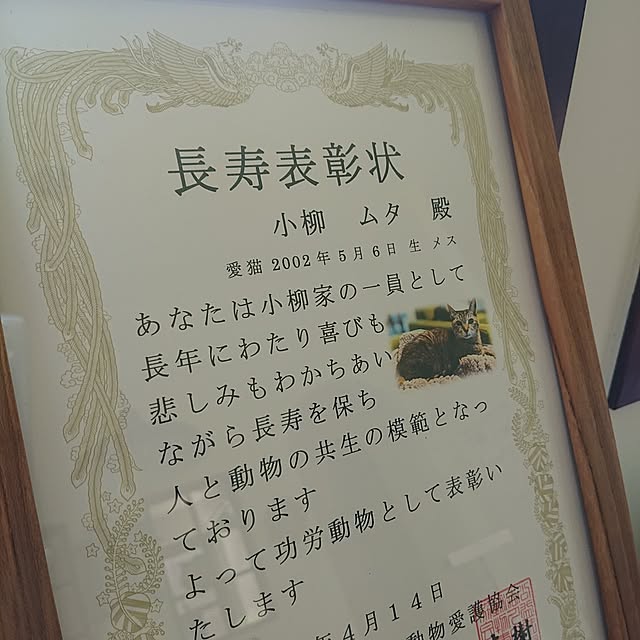 長寿表彰状
小柳 ムタ 殿
愛猫 2002年5月6日 生 メス
あなたは小柳家の一員として
長年にわたり喜びも
悲しみもわかちあい
ながら長寿を保ち
人と動物の共生の模範となっ
ております
よって功労動物として表彰い
たします
年4月14日
動物愛護協会